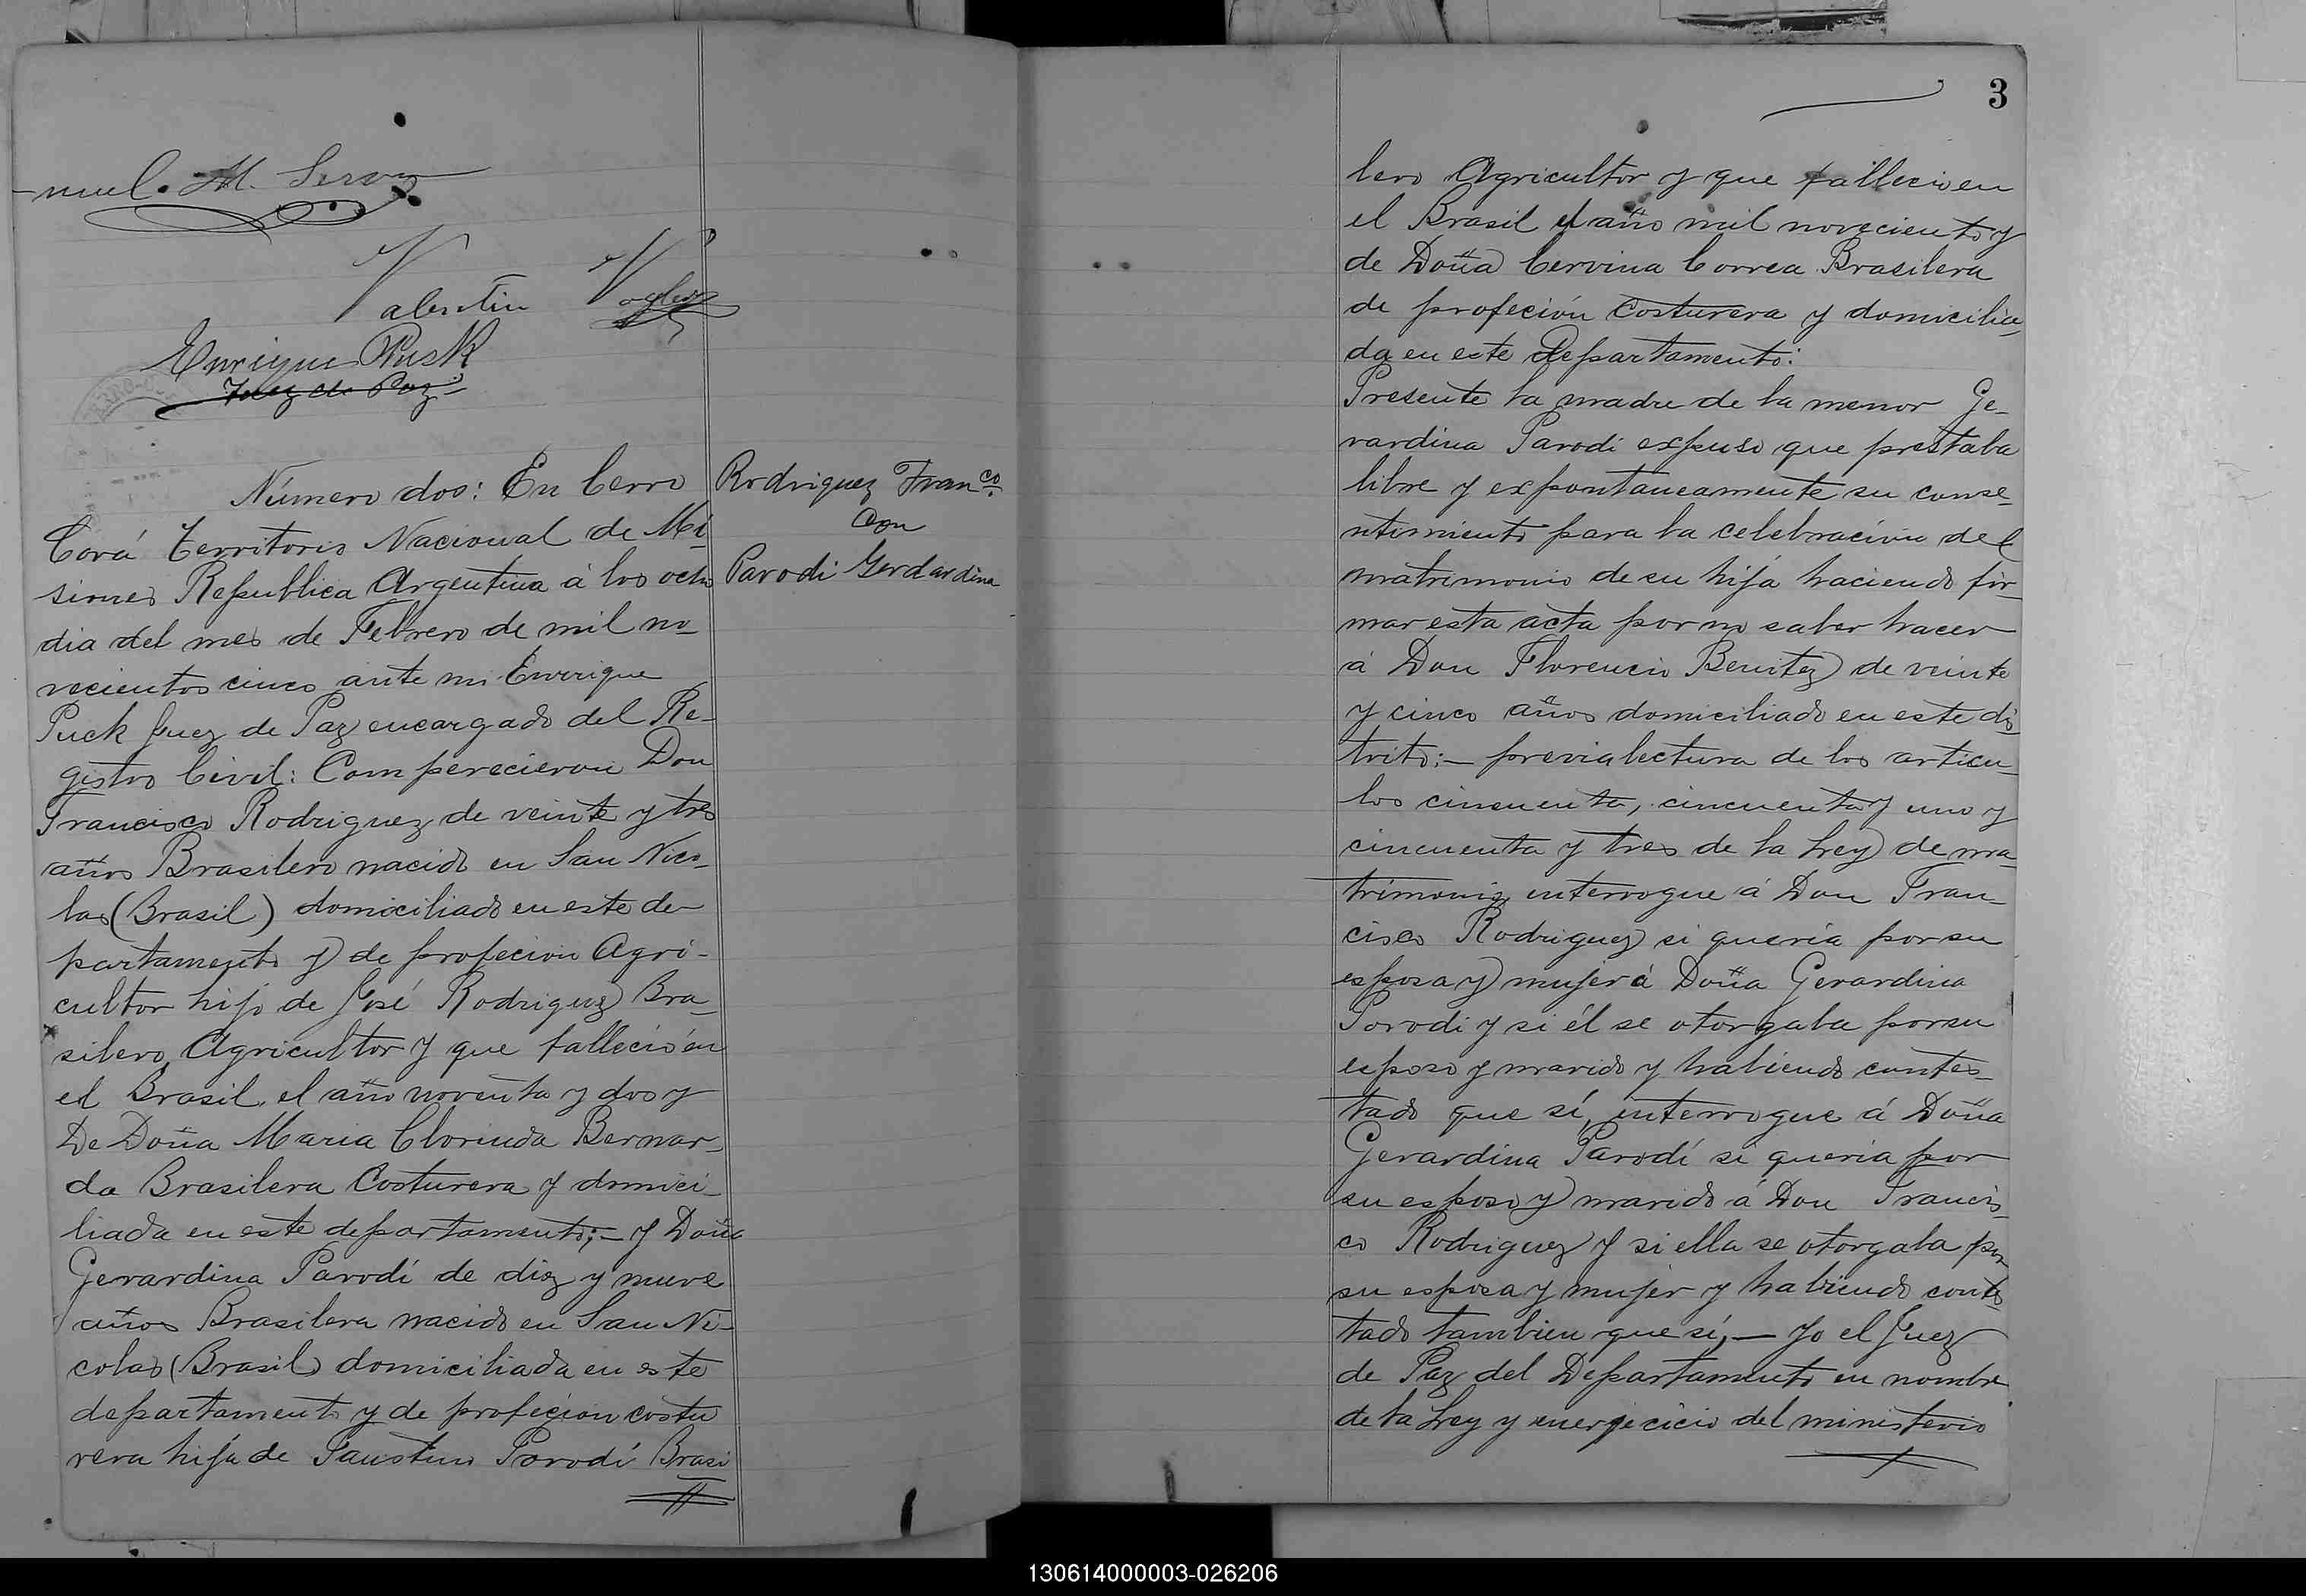 -nuel. M. Serov
Valentin Vogler
Enrique Pusk
Juez de Paz
Número dos: En Cerro
Corá Territorio Nacional de Mi-
siones Republica Argentina á los ocho
dia del mes de Febrero de mil no-
vecientos cinco ante mi Enrrique
Puck Juez de Paz encargado del Re-
gistro Civil: Comperecieron Don
Francisco Rodriguez de veinte y tres
años Brasilero nacido en San Nico-
las (Brasil) domiciliado en este de-
partamento y de profecion Agri-
cultor hijo de José Rodriguez Bra-
silero, Agricultor y que falleció en
el Brasil, el año noventa y dos y
De Doña Maria Clorinda Bernar-
da Brasilera Costurera y domici-
liada en este departamento;- y Doña
Gerardina Parodi de diez y nueve
años Brasilera nacido en San Ni-
colas (Brasil) domiciliada en este
departamento y de profecion costu
rera hija de Faustino Parodi Brasi
Rodriguez Franco.
con
Parodi Gerdardina
3
lero Agricultor y que fallecio en
el Brasil el año mil noveciento y
de Doña Cervina Correa Brasilera
de profeción Costurera y domicilia-
da en este Departamento:
Presente la madre de la menor Ge-
rardina Parodi expuso que prestaba
libre y expontaneamente su conse-
ntimiento para la celebración del
matrimonio de su hija haciendo fir-
mar esta acta por no saber hacer
á Don Florencio Benitez de veinte
y cinco años domiciliado en este dis
trito:- previa lectura de los articu-
los cincuenta, cincuenta y uno y
cincuenta y tres de la Ley de ma-
trimonio, interrogue á Don Fran-
cisco Rodriguez si queria por su
esposa y mujer á Doña Gerardina
Parodi y si él se otorgaba por su
esposo y marido y habiendo contes-
tado que sí, interrogue á Doña
Gerardina Parodi si queria por
su esposo y marido á Don Francis-
co Rodriguez y si ella se otorgaba por
su esposa y mujer y habiendo contes
tado tambien que sí,- Yo el Juez
de Paz del Departamento en nombre
de la Ley y enerjecicio del ministerio
130614000003-026206